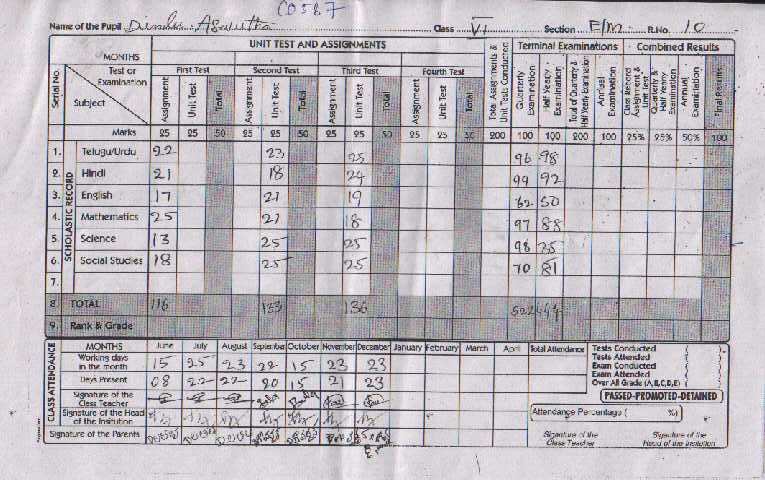 C0587
Name of the Pupil Class VI Section E/M R.No. 10
UNIT TEST AND ASSIGNMENTS Total Assignments & Unit Tests Conducted Terminal Examinations Combined Results
Serial No. MONTHS
Test or Examination First Test Second Test Third Test Fourth Test
Subject Assignment Unit Test Total Assignment Unit Test Total Assignment Unit Test Total Assignment Unit Test Total Quarterly Examination Half Yearly Examination Total of Quarterly & Half Yearly Examination Annual Examination Class Record Assignment & Unit Test Quarterly & Half Yearly Examination Annual Examination Final Results
Marks 25 25 50 25 25 50 25 25 50 25 25 50 200 100 100 200 100 25% 25% 50% 100
SCHOLASTIC RECORD
1. Telugu/Urdu 22 23 25 96 98
2. Hindi 21 18 24 99 92
3. English 17 21 19 62 50
4. Mathematics 25 21 18 97 88
5. Science 13 25 25 98 75
6. Social Studies 18 25 25 70 81
7.
8. TOTAL 116 133 136 522
9. Rank & Grade
CLASS ATTENDANCE
MONTHS June July August September October November December January February March April Total Attendance
Working days in the month 15 25 23 22 15 23 23
Days Present 08 22 22 20 15 21 23
Signature of the Class Teacher
Signature of the Head of the Institution
Signature of the Parents
Tests Conducted ( )
Tests Attended ( )
Exam Conducted ( )
Exam Attended ( )
Over All Grade (A,B,C,D,E) ( )
PASSED-PROMOTED-DETAINED
Attendance Percentage ( %)
Signature of the Class Teacher Signature of the Head of the Institution